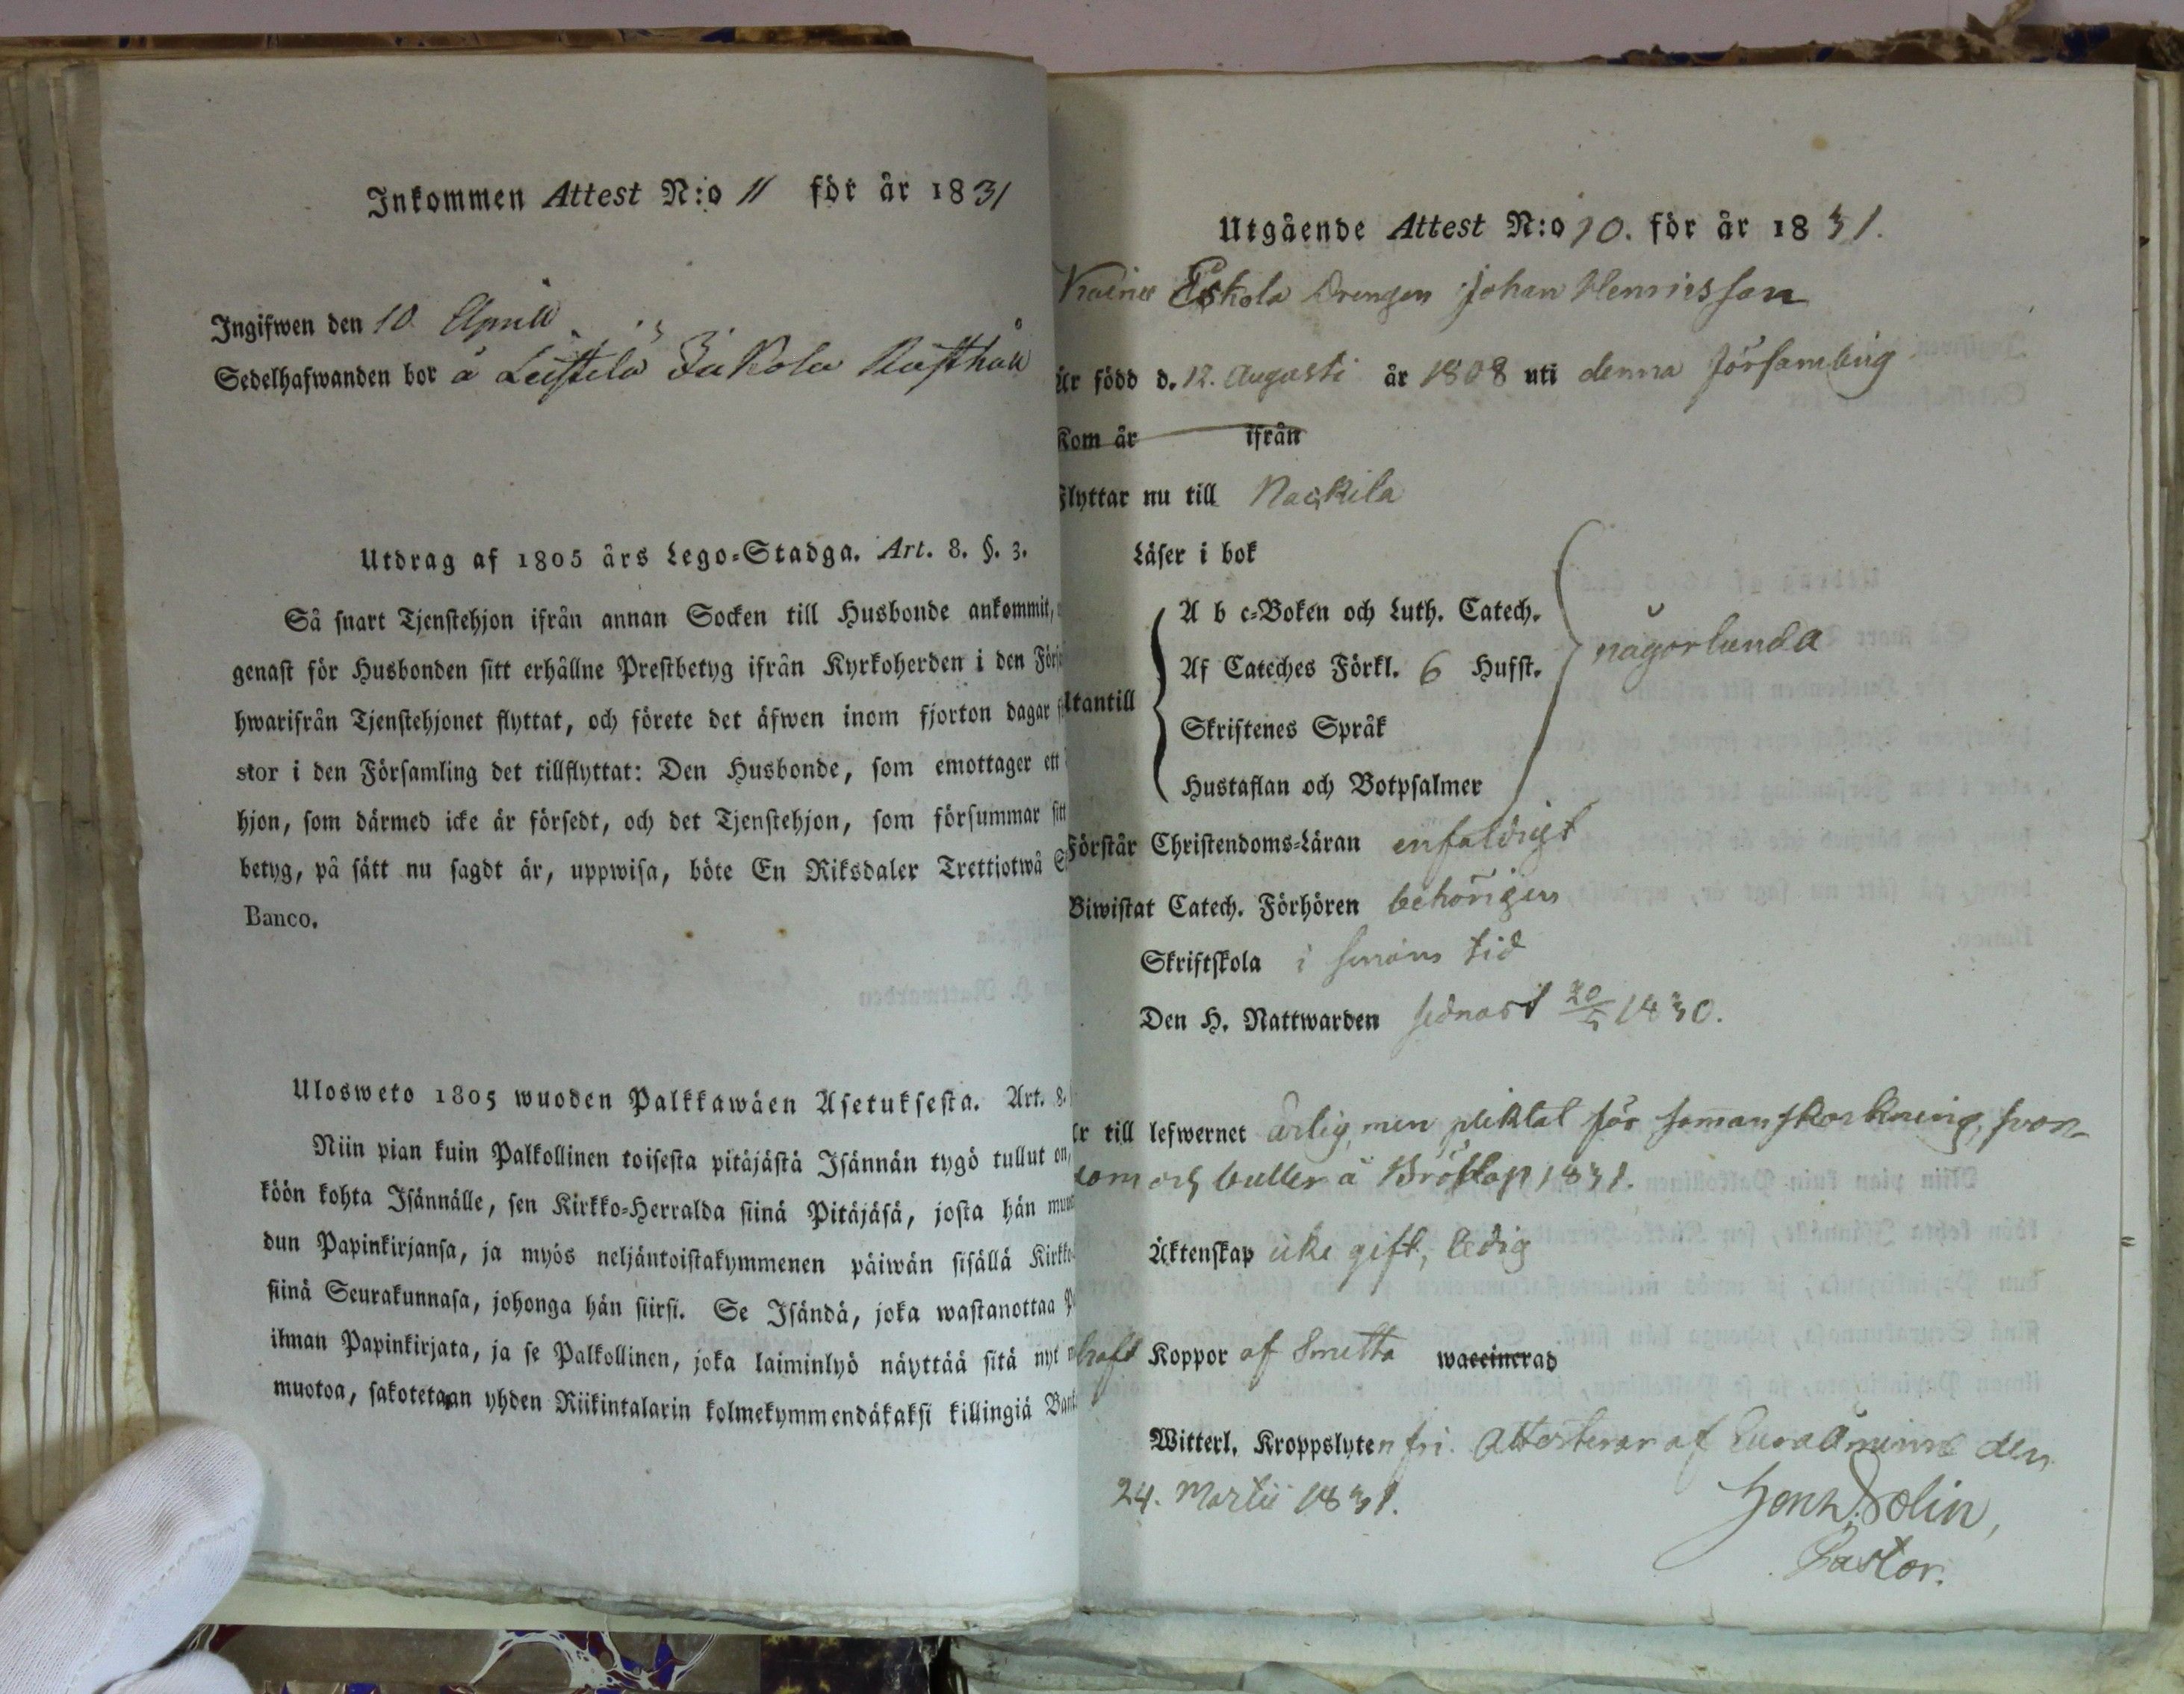 Inkommen Attest N:o 11 för år 1831
Ingifwen den 10 April
Sedelhafwanden bor å Leistilä Jakola Rusthåll
Utdrag af 1805 års Lego-Stadga. Art. 8. §. 3.
Så snart Tjenstehjon ifrån annan Socken till Husbonde ankommit,
genast för Husbonden sitt erhållne Prestbetyg ifrån Kyrkoherden i den Förs
hwarifrån Tjenstehjonet flyttat, och förete det äfwen inom fjorton dagar
stor i den Församling det tillflyttat: Den Husbonde, som emottager ett
hjon, som därmed icke är försedt, och det Tjenstehjon, som försummar sitt
betyg, på sätt nu sagdt är, uppwisa, böte En Riksdaler Trettiotwå
Banco.
Ulosweto 1805 wuoden Palkkawäen Asetuksesta. Art. 8.
Niin pian kuin Palkollinen toisesta pitäjästä Isännän tygö tullut on,
köön kohta Isännälle, sen Kirkko-Herralda siinä Pitäjäsä, josta hän
dun Papinkirjansa, ja myös neljäntoistakymmenen päiwän sisällä Kirkko-
siinä Seurakunnasa, johonga hän siirsi. Se Isändä, joka wastanottaa
ilman Papinkirjata, ja se Palkollinen, joka laiminlyö näyttää sitä nyt
muotoa, sakotetaan yhden Riikintalarin kolmekymmendäkaksi killingiä
Utgående Attest N:o 10. för år 1831.
Eskola Drengen Johan Henricsson
Är född d. 12. Augusti år 1808 uti denna församling
Kom år ifrån
Flyttar nu till Nackila
Läser i bok
A b c-Boken och Luth. Catech.
Af Cateches Förkl. 6 Hufst. någorlunda
Utantill
Skriftenes Språk
Hustaflan och Botpsalmer
Förstår Christendoms-Läran enfaldigt
Biwistat Catech. Förhören behörigen
Skriftskola i sinom tid
Den H. Nattwarden sednast 20/5 1830.
Är till lefwernet ärlig, men pliktat för
dom och buller å Bröllop 1831.
Äktenskap icke gift, ledig
haft Koppor af Smitta waccinerad
Witterl. Kroppslyten fri. Attesterar af Eura Åminne den
24. Martii 1831.
Henr. Dolin,
Pastor.